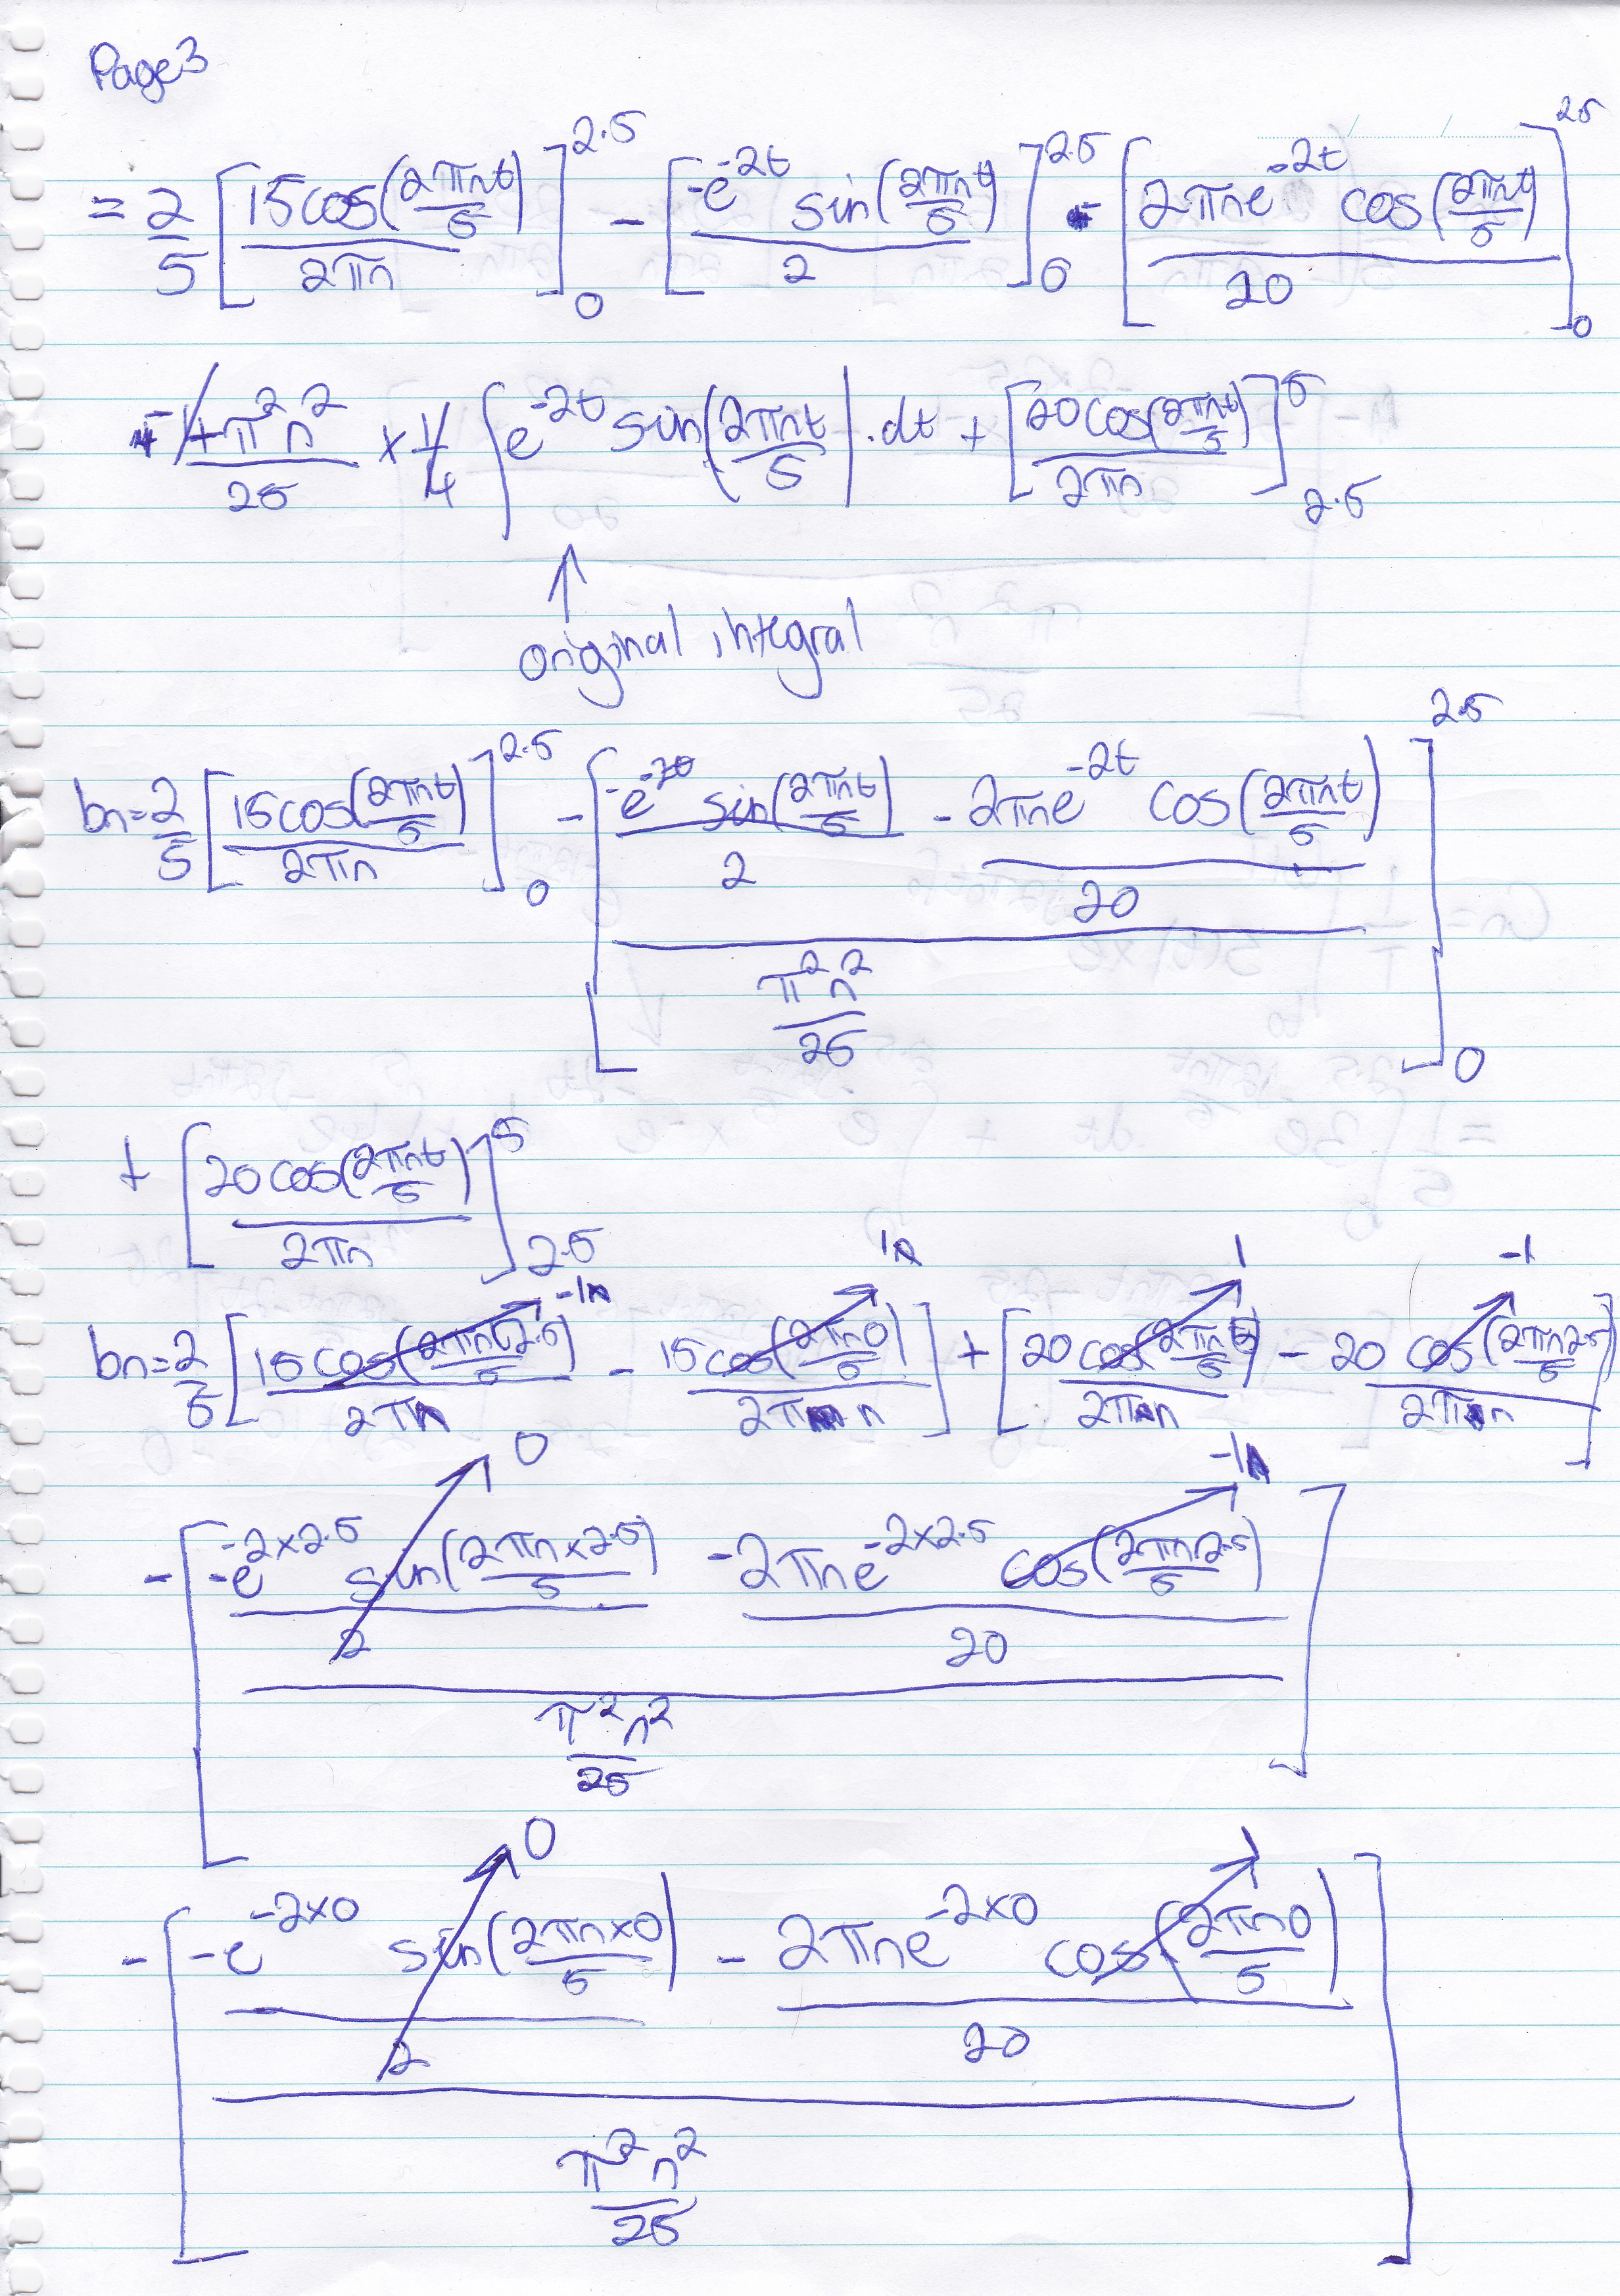 Page 3
= 2/5 [15cos(2πnt/5)/2πn]_0^2.5 - [-e^-2t sin(2πnt/5)/2]_0^2.5 - [2πne^-2t cos(2πnt/5)/20]_0^25
- 4π²n²/25 × 1/4 ∫e^-2t sin(2πnt/5).dt + [20cos(2πnt/5)/2πn]_2.5^5
↑
original integral
bn = 2/5 [15cos(2πnt/5)/2πn]_0^2.5 - [(-e^-2t sin(2πnt/5)/2 - 2πne^-2t cos(2πnt/5)/20)/(π²n²/25)]_0^2.5
+ [20cos(2πnt/5)/2πn]_2.5^5
-1 1 1 -1
bn = 2/5 [15cos(2πn2.5/5)/2πn - 15cos(2πn0/5)/2πn] + [20cos(2πn5/5)/2πn - 20cos(2πn2.5/5)/2πn]
0 -1
- [(-e^-2×2.5 sin(2πn×2.5/5)/2 - 2πne^-2×2.5 cos(2πn2.5/5)/20)/(π²n²/25)]
0 1
- [(-e^-2×0 sin(2πn×0/5)/2 - 2πne^-2×0 cos(2πn0/5)/20)/(π²n²/25)]